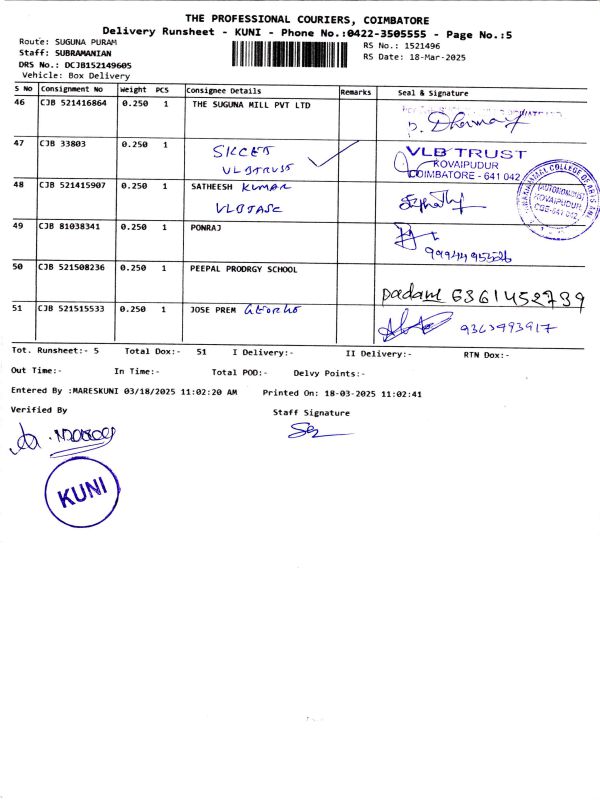 THE PROFESSIONAL COURIERS, COIMBATORE
Delivery Runsheet - KUNI - Phone No.:0422-3505555 - Page No.:5
Route: SUGUNA PURAM
Staff: SUBRAMANIAN
DRS No.: DCJB152149605
Vehicle: Box Delivery
RS No.: 1521496
RS Date: 18-Mar-2025
S No Consignment No Weight PCS Consignee Details Remarks Seal & Signature
46 CJB 521416864 0.250 1 THE SUGUNA MILL PVT LTD
47 CJB 33803 0.250 1 SKCET
VLBTRUST
VLB TRUST
KOVAIPUDUR
COIMBATORE - 641 042
48 CJB 521415907 0.250 1 SATHEESH KUMAR
VLBJASC
COLLEGE OF ARTS AND
(AUTONOMOUS)
KOVAIPUDUR
CBE-641 042.
49 CJB 81038341 0.250 1 PONRAJ
50 CJB 521508236 0.250 1 PEEPAL PRODRGY SCHOOL
padam 6361452739
51 CJB 521515533 0.250 1 JOSE PREM GEORGE
9363493917
Tot. Runsheet:- 5 Total Dox:- 51 I Delivery:- II Delivery:- RTN Dox:-
Out Time:- In Time:- Total POD:- Delvy Points:-
Entered By :MARESKUNI 03/18/2025 11:02:20 AM Printed On: 18-03-2025 11:02:41
Verified By Staff Signature
KUNI